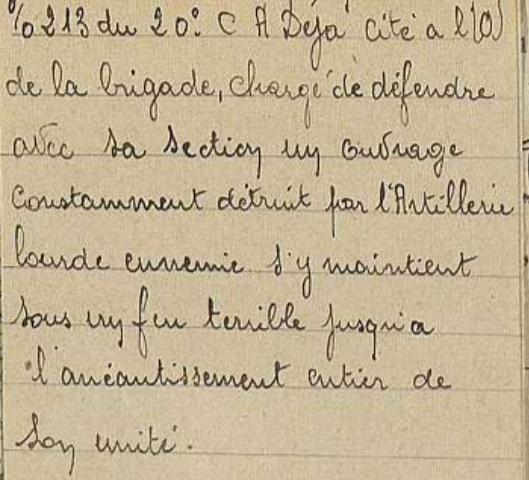 % 213 du 20e C A Déja cité a l'O
de la brigade, chargé de défendre
avec sa section un ouvrage
Constamment détruit par l'Artillerie
lourde ennemie s'y maintient
sous un feu terrible jusqu'a
l'anéantissement entier de
son unité.